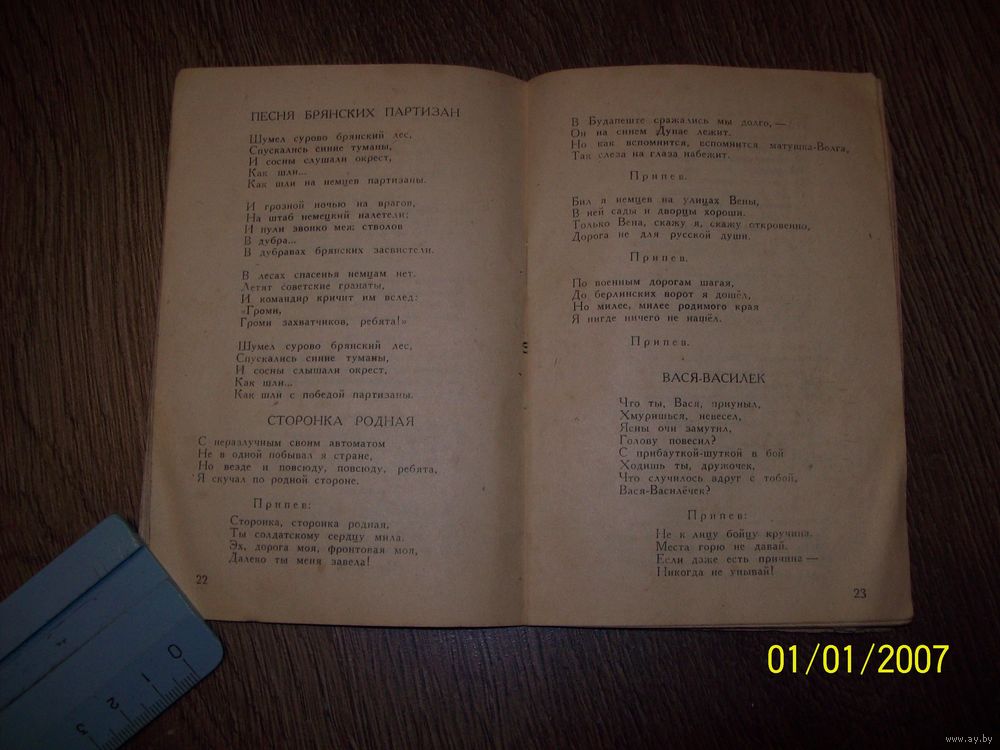 ПЕСНЯ БРЯНСКИХ ПАРТИЗАН
Шумел сурово брянский лес,
Спускались синие туманы,
И сосны слушали окрест,
Как шли...
Как шли на немцев партизаны.
И грозной ночью на врагов,
На штаб немецкий налетели;
И пули звонко меж стволов
В дубра...
В дубравах брянских засвистели.
В лесах спасенья немцам нет.
Летят советские гранаты,
И командир кричит им вслед:
«Громи,
Громи захватчиков, ребята!»
Шумел сурово брянский лес,
Спускались синие туманы,
И сосны слышали окрест,
Как шли...
Как шли с победой партизаны.
СТОРОНКА РОДНАЯ
С неразлучным своим автоматом
Не в одной побывал я стране,
Но везде и повсюду, повсюду, ребята,
Я скучал по родной стороне.
Припев:
Сторонка, сторонка родная,
Ты солдатскому сердцу мила.
Эх, дорога моя, фронтовая моя,
Далеко ты меня завела!
22
В Будапеште сражались мы долго,—
Он на синем Дунае лежит.
Но как вспомнится, вспомнится матушка-Волга,
Так слеза на глаза набежит.
Припев.
Бил я немцев на улицах Вены,
В ней сады и дворцы хороши.
Только Вена, скажу я, скажу откровенно,
Дорога не для русской души.
Припев.
По военным дорогам шагая,
До берлинских ворот я дошёл,
Но милее, милее родимого края
Я нигде ничего не нашёл.
Припев.
ВАСЯ-ВАСИЛЕК
Что ты, Вася, приуныл,
Хмуришься, невесел,
Ясны очи замутил,
Голову повесил?
С прибауткой-шуткой в бой
Ходишь ты, дружочек,
Что случилось вдруг с тобой,
Вася-Василёчек?
Припев:
Не к лицу бойцу кручина.
Места горю не давай.
Если даже есть причина—
Никогда не унывай!
23
0
1
2
3
01/01/2007
www.ay.by